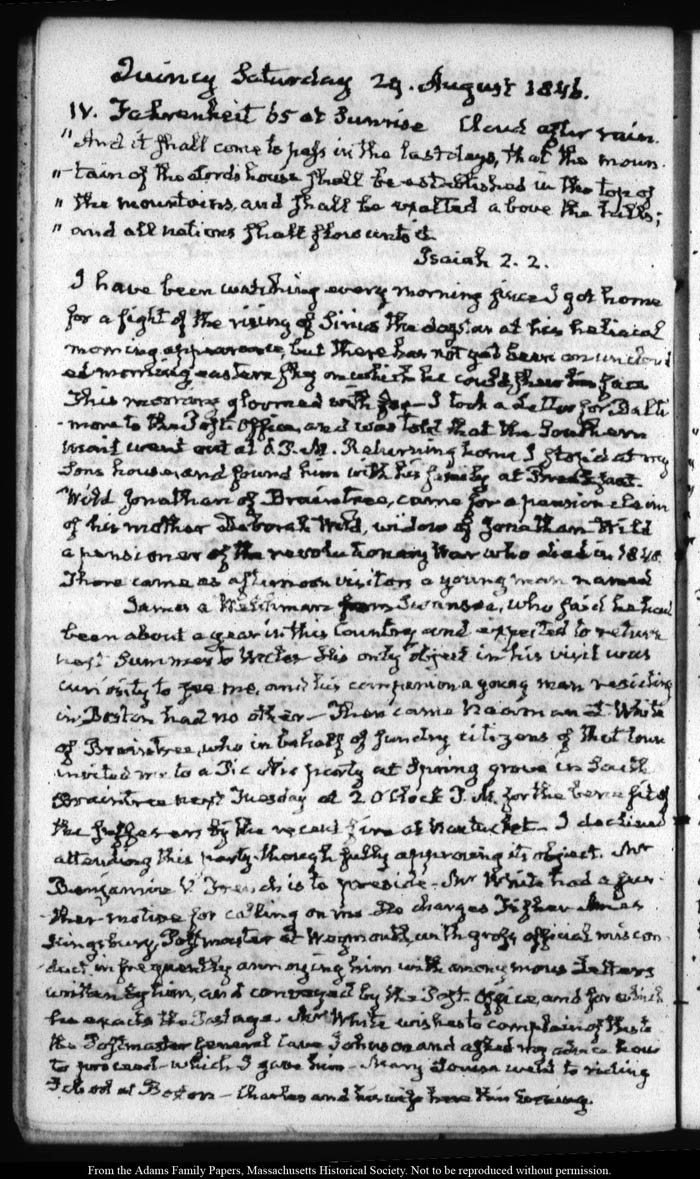 Quincy Saturday 29. August 1846.
IV. Fahrenheit 65 at Sunrise Cloud after rain.
"And it shall come to pass in the last days, that the moun-
"tain of the Lords house shall be established in the top of
" the mountains, and shall be exalted above the hills;
" and all nations shall flow unto it.
Isaiah 2. 2.
I have been watching every morning since I got home
for a sight of the rising of Sirius the dogstar at his heliacal
morning appearance, but there has not yet been an uncloud
ed morning eastern sky on which he could shew his face
This morning gloomed with fog I took a Letter for Balti
-more to the Post-Office, and was told that the Southern
mail went out at P.M. Returning home I stop'd at my
Sons house, and found him with his family at Breakfast.
Wild Jonathan of Braintree, came for a pension claim
of his mother Deborah Wild, widow of Jonathan Wild
a pensioner of the revolutionary War who died in 1840
There came as afternoon visitors a young man named
James a Welchman from Swansea, who said he had
been about a year in this Country and expected to return
next Summer to Wales His only object in his visit was
curiosity to see me, and his companion a young man residing
in Boston had no other — Then came Naaman L White
of Braintree, who in behalf of sundry citizens of that town
invited me to a Pic Nic party at Spring grove in South
Braintree next Tuesday at 2 O'Clock P.M. for the benefit of
the sufferers by the recent fire at Nantucket — I declined
attending this party, though fully approving its object. Mr
Benjamin V. French is to preside — Mr White had a fur-
-ther motive for calling on me. He charges
Kingsbury, Postmaster at Weymouth, with gross official miscon
-duct, in frequently annoying him with anonymous Letters
written by him, and conveyed by the Post-Office, and for which
he exacts the Postage. Mr White wishes to complain of this to
the Postmaster General Cave Johnson and asked my advice how
to proceed — which I gave him — Mary Louisa went to riding
School at Boston — Charles and his wife here this Evening.
From the Adams Family Papers, Massachusetts Historical Society. Not to be reproduced without permission.